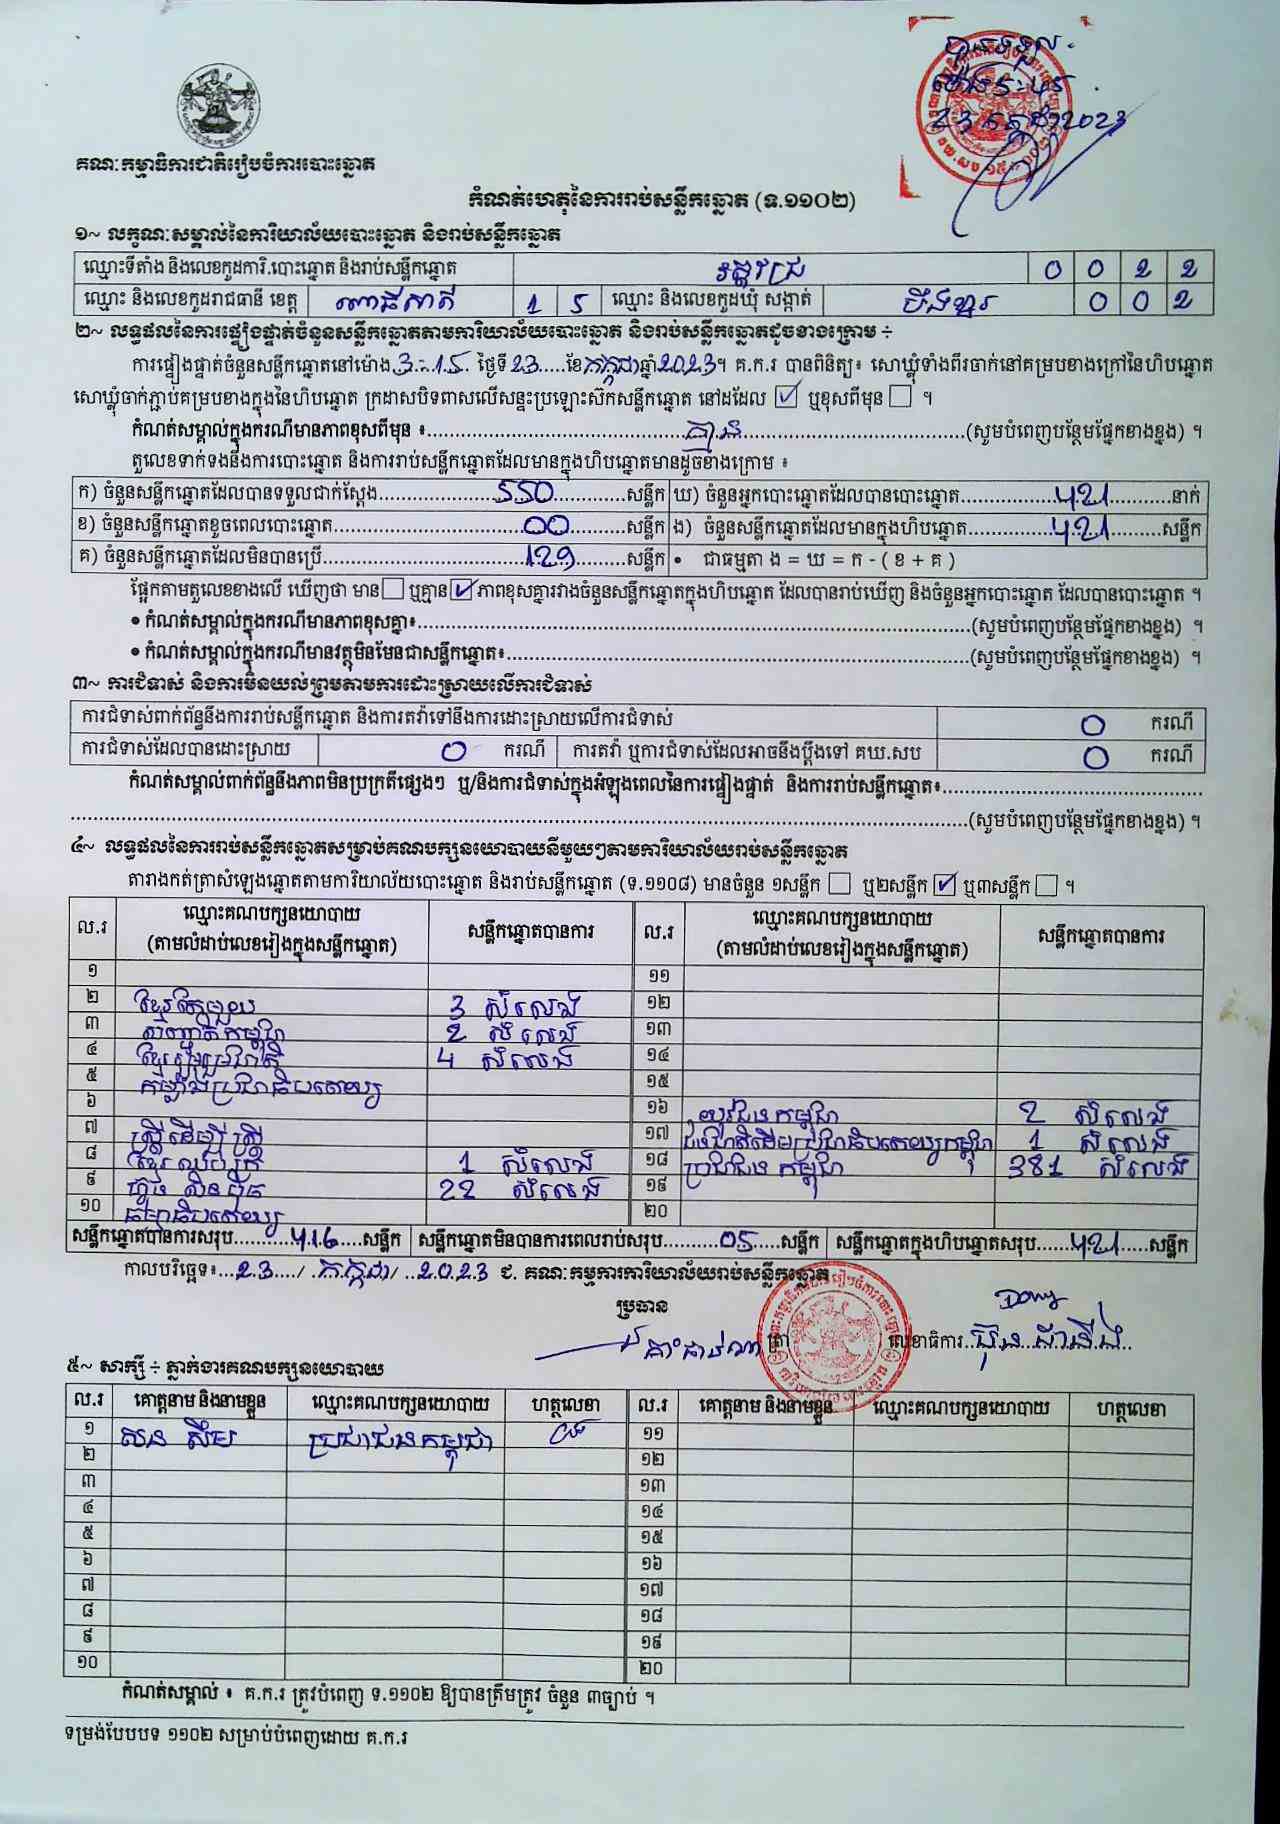 បានទទួល
ម៉ោង ៩:៤៥
23 កក្កដា 2023
គណៈកម្មាធិការជាតិរៀបចំការបោះឆ្នោត
កំណត់ហេតុនៃការរាប់សន្លឹកឆ្នោត (ទ.១១០២)
១~ លក្ខណៈសម្គាល់នៃការិយាល័យបោះឆ្នោត និងរាប់សន្លឹកឆ្នោត
ឈ្មោះទីតាំង និងលេខកូដការិ.បោះឆ្នោត និងរាប់សន្លឹកឆ្នោត 0 0 2 2
ឈ្មោះ និងលេខកូដរាជធានី ខេត្ត ពោធិ៍សាត់ 1 5 ឈ្មោះ និងលេខកូដឃុំ សង្កាត់ បឹងខ្នារ 0 0 2
២~ លទ្ធផលនៃការផ្ទៀងផ្ទាត់ចំនួនសន្លឹកឆ្នោតតាមការិយាល័យបោះឆ្នោត និងរាប់សន្លឹកឆ្នោតដូចខាងក្រោម ÷
ការផ្ទៀងផ្ទាត់ចំនួនសន្លឹកឆ្នោតនៅម៉ោង 3:15 ថ្ងៃទី 23 ខែ កក្កដា ឆ្នាំ 2023។ គ.ក.រ បានពិនិត្យ៖ សោឃ្លុំទាំងពីរចាក់នៅគម្របខាងក្រៅនៃហិបឆ្នោត
សោឃ្លុំចាក់ភ្ជាប់គម្របខាងក្នុងនៃហិបឆ្នោត ក្រដាសបិទពាសលើសន្ទះប្រឡោះស៊កសន្លឹកឆ្នោត នៅដដែល ☑ ឬខុសពីមុន ☐ ។
កំណត់សម្គាល់ក្នុងករណីមានភាពខុសពីមុន ៖ គ្មាន (សូមបំពេញបន្ថែមផ្នែកខាងខ្នង) ។
តួលេខទាក់ទងនឹងការបោះឆ្នោត និងការរាប់សន្លឹកឆ្នោតដែលមានក្នុងហិបឆ្នោតមានដូចខាងក្រោម ៖
ក) ចំនួនសន្លឹកឆ្នោតដែលបានទទួលជាក់ស្តែង 550 សន្លឹក ឃ) ចំនួនអ្នកបោះឆ្នោតដែលបានបោះឆ្នោត 421 នាក់
ខ) ចំនួនសន្លឹកឆ្នោតខូចពេលបោះឆ្នោត 00 សន្លឹក ង) ចំនួនសន្លឹកឆ្នោតដែលមានក្នុងហិបឆ្នោត 421 សន្លឹក
គ) ចំនួនសន្លឹកឆ្នោតដែលមិនបានប្រើ 129 សន្លឹក • ជាធម្មតា ង = ឃ = ក - ( ខ + គ )
ផ្អែកតាមតួលេខខាងលើ ឃើញថា មាន ☐ ឬគ្មាន ☑ ភាពខុសគ្នារវាងចំនួនសន្លឹកឆ្នោតក្នុងហិបឆ្នោត ដែលបានរាប់ឃើញ និងចំនួនអ្នកបោះឆ្នោត ដែលបានបោះឆ្នោត ។
• កំណត់សម្គាល់ក្នុងករណីមានភាពខុសគ្នា៖ (សូមបំពេញបន្ថែមផ្នែកខាងខ្នង) ។
• កំណត់សម្គាល់ក្នុងករណីមានវត្ថុមិនមែនជាសន្លឹកឆ្នោត៖ (សូមបំពេញបន្ថែមផ្នែកខាងខ្នង) ។
៣~ ការជំទាស់ និងការមិនយល់ព្រមតាមការដោះស្រាយលើការជំទាស់
ការជំទាស់ពាក់ព័ន្ធនឹងការរាប់សន្លឹកឆ្នោត និងការតវ៉ាទៅនឹងការដោះស្រាយលើការជំទាស់ 0 ករណី
ការជំទាស់ដែលបានដោះស្រាយ 0 ករណី ការតវ៉ា ឬការជំទាស់ដែលអាចនឹងប្តឹងទៅ គឃ.សប 0 ករណី
កំណត់សម្គាល់ពាក់ព័ន្ធនឹងភាពមិនប្រក្រតីផ្សេងៗ ឬ/និងការជំទាស់ក្នុងអំឡុងពេលនៃការផ្ទៀងផ្ទាត់ និងការរាប់សន្លឹកឆ្នោត៖
(សូមបំពេញបន្ថែមផ្នែកខាងខ្នង) ។
៤~ លទ្ធផលនៃការរាប់សន្លឹកឆ្នោតសម្រាប់គណបក្សនយោបាយនីមួយៗតាមការិយាល័យរាប់សន្លឹកឆ្នោត
តារាងកត់ត្រាសំឡេងឆ្នោតតាមការិយាល័យបោះឆ្នោត និងរាប់សន្លឹកឆ្នោត (ទ.១១០៨) មានចំនួន ១សន្លឹក ☐ ឬ២សន្លឹក ☑ ឬ៣សន្លឹក ☐ ។
ល.រ ឈ្មោះគណបក្សនយោបាយ (តាមលំដាប់លេខរៀងក្នុងសន្លឹកឆ្នោត) សន្លឹកឆ្នោតបានការ ល.រ ឈ្មោះគណបក្សនយោបាយ (តាមលំដាប់លេខរៀងក្នុងសន្លឹកឆ្នោត) សន្លឹកឆ្នោតបានការ
១ ១១
២ ខ្មែរតែមួយ 3 សំលេង ១២
៣ សញ្ជាតិកម្ពុជា 2 សំលេង ១៣
៤ ខ្មែររួបរួមជាតិ 4 សំលេង ១៤
៥ កម្លាំងប្រជាធិបតេយ្យ ១៥
៦ ១៦ យុវជនកម្ពុជា 2 សំលេង
៧ ស្ត្រីដើម្បីស្ត្រី ១៧ ជនជាតិដើមប្រជាធិបតេយ្យកម្ពុជា 1 សំលេង
៨ ខ្មែរឈប់ក្រ 1 សំលេង ១៨ ប្រជាជនកម្ពុជា 381 សំលេង
៩ ហ្វ៊ុនស៊ិនប៉ិច 22 សំលេង ១៩
១០ ធម្មាធិបតេយ្យ ២០
សន្លឹកឆ្នោតបានការសរុប 416 សន្លឹក សន្លឹកឆ្នោតមិនបានការពេលរាប់សរុប 05 សន្លឹក សន្លឹកឆ្នោតក្នុងហិបឆ្នោតសរុប 421 សន្លឹក
កាលបរិច្ឆេទ៖ 23 / កក្កដា / 2023 ជ. គណៈកម្មការការិយាល័យរាប់សន្លឹកឆ្នោត
ប្រធាន
ត្រា លេខាធិការ
៥~ សាក្សី ÷ ភ្នាក់ងារគណបក្សនយោបាយ
ល.រ គោត្តនាម និងនាមខ្លួន ឈ្មោះគណបក្សនយោបាយ ហត្ថលេខា ល.រ គោត្តនាម និងនាមខ្លួន ឈ្មោះគណបក្សនយោបាយ ហត្ថលេខា
១ សន ស៊ីម ប្រជាជនកម្ពុជា ១១
២ ១២
៣ ១៣
៤ ១៤
៥ ១៥
៦ ១៦
៧ ១៧
៨ ១៨
៩ ១៩
១០ ២០
កំណត់សម្គាល់ ៖ គ.ក.រ ត្រូវបំពេញ ទ.១១០២ ឱ្យបានត្រឹមត្រូវ ចំនួន ៣ច្បាប់ ។
ទម្រង់បែបបទ ១១០២ សម្រាប់បំពេញដោយ គ.ក.រ